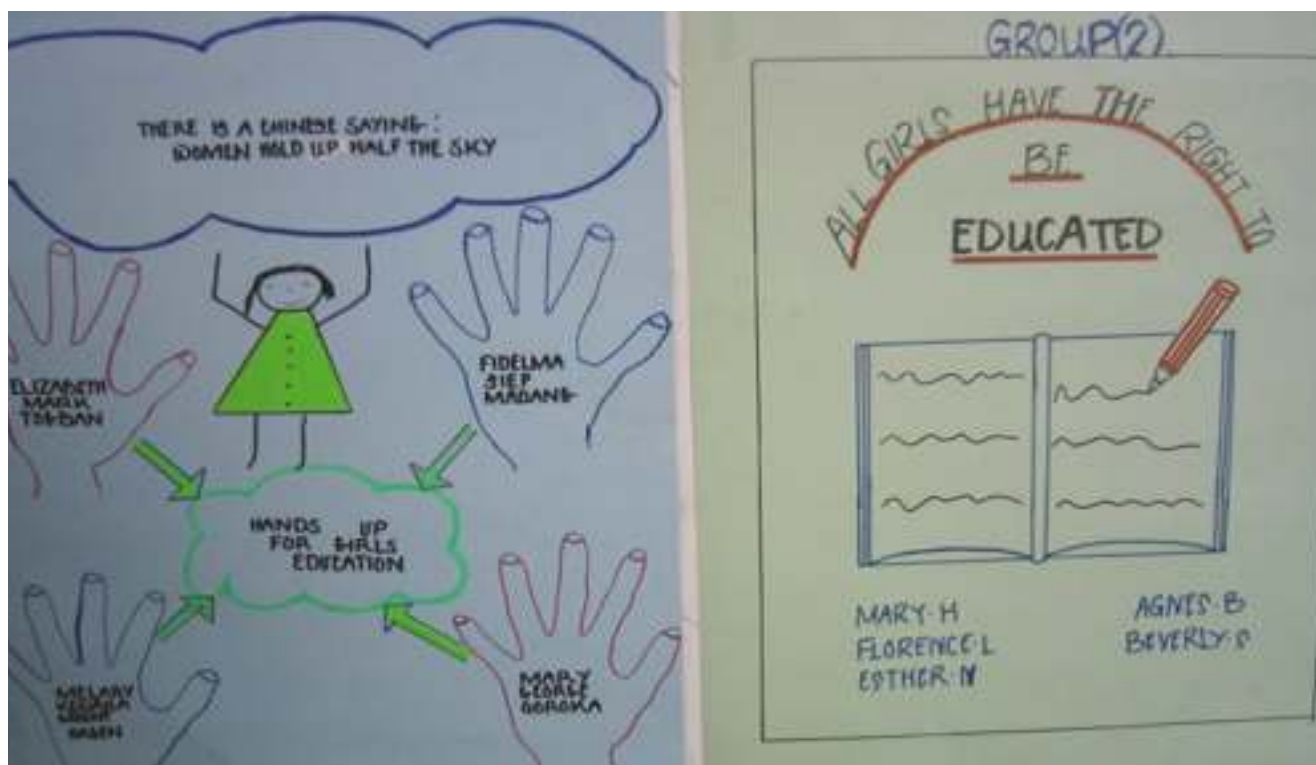 THERE IS A CHINESE SAYING:
WOMEN HOLD UP HALF THE SKY
ELIZABETH
MARK
FIDELMA
SIEP
MADANG
HANDS UP
FOR GIRLS
EDUCATION
MELARY
HAGEN
MARY
GEORGE
GOROKA
GROUP(2)
ALL GIRLS HAVE THE RIGHT TO
BE
EDUCATED
MARY·H
FLORENCE·L
ESTHER·N
AGNES·B
BEVERLY·S